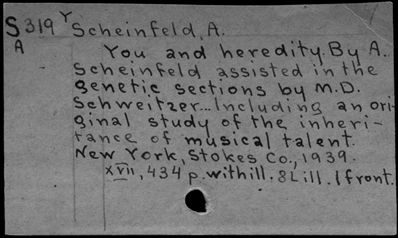 S319 Y Scheinfeld, A.
A You and heredity. By A.
Scheinfeld assisted in the
genetic sections by M.D.
Schweitzer... Including an ori-
ginal study of the inheri-
tance of musical talent.
New York, Stokes Co., 1939.
XVII, 434 p. with ill. 8L ill. 1 front.